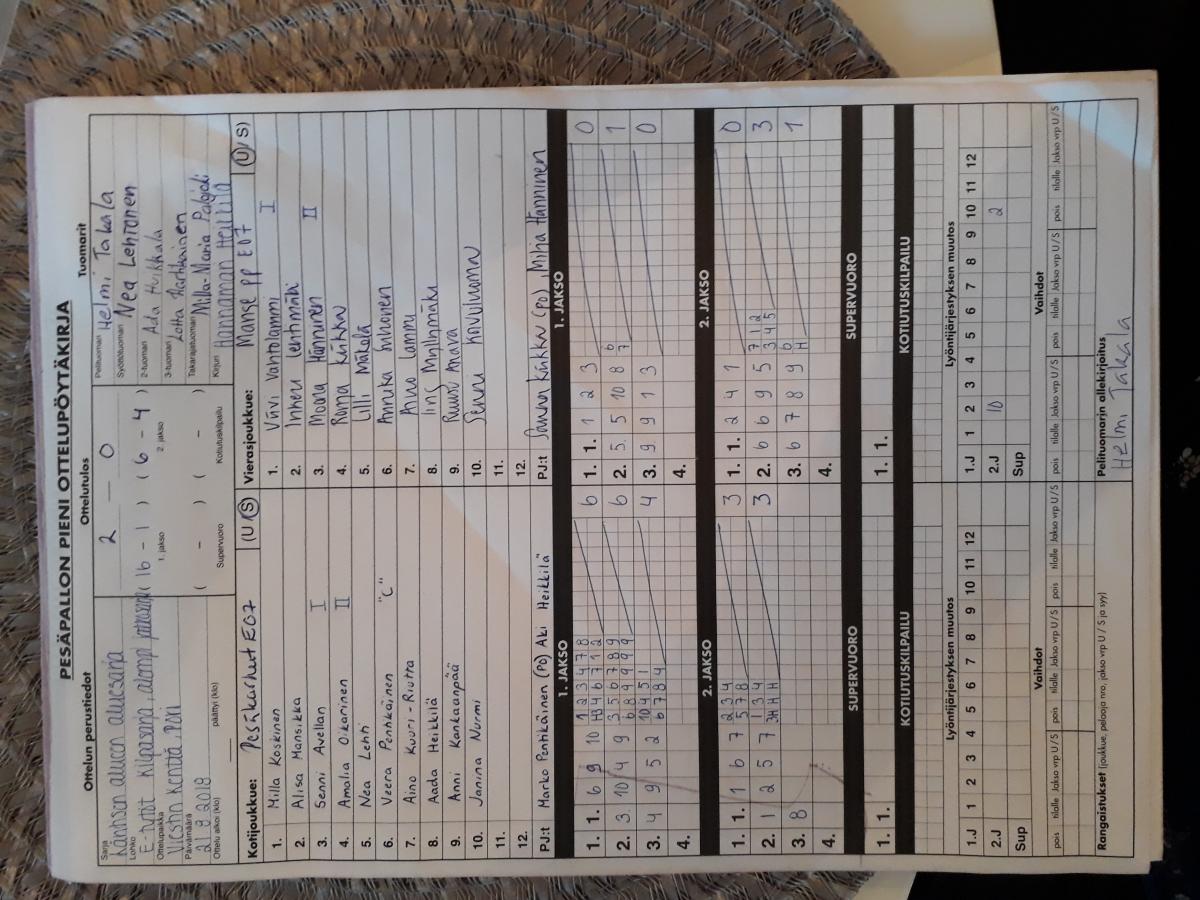 PESÄPALLON PIENI OTTELUPÖYTÄKIRJA
Ottelun perustiedot
Sarja
Länsisen alueen aluesarja
Lohko
E-tytöt Kilpasarja alempi jatkosarja
Ottelupaikka
Viestin Kenttä, Pori
Päivämäärä
2.8.2018
Ottelu alkoi (klo) päättyi (klo)
Ottelutulos
2 — 0
( 16 - 1 ) ( 6 - 4 )
1. jakso 2. jakso
( - ) ( - )
Supervuoro Kotiutuskilpailu
Tuomarit
Pelituomari Helmi Takala
Syöttötuomari Nea Lehtonen
2-tuomari Ada Huikkala
3-tuomari Lotta Harhkainen
Takarajatuomari Milla-Maria Palojoki
Kirjuri Hannamari Heikkilä
Kotijoukkue: Pesäkarhut E07 (U/S)
1. Milla Koskinen
2. Alisa Mansikka
3. Senni Avellan I
4. Amalia Oikarinen II
5. Nea Lehti
6. Veera Penhkäinen "C"
7. Aino Kuuri-Riutta
8. Aada Heikkilä
9. Anni Kankaanpää
10. Janina Nurmi
11.
12.
PJ:t Marko Penhkäinen (PO) Aki Heikkilä
Vierasjoukkue: Manse PP E07 (U/S)
1. Viivi Vahtolammi I
2. Inkeri Lehtimäki
3. Moona Hänninen II
4. Ronja Kukka
5. Lilli Mäkelä
6. Annika Suhonen
7. Aino Lammi
8. Iina Myllymäki
9. Ruusu Anava
10. Senni Koivuluoma
11.
12.
PJ:t Sanna Kukka (PO) Milja Hänninen
1. JAKSO
1. 1. 6 9 10 1 2 3 4 7 8 6
H3 4 6 7 1 2
2. 3 10 4 9 3 5 6 7 8 9 6
6 8 9 9 9 9
3. 4 9 5 2 10 4 5 1 4
6 7 8 4
4.
1. JAKSO
1. 1. 1 2 3 0
2. 5 5 10 8 6 1
7
3. 9 9 1 3 0
4.
2. JAKSO
1. 1. 1 6 7 2 3 4 3
5 7 8
2. 1 2 5 7 1 3 4 3
3H H H
3. 8
4.
2. JAKSO
1. 1. 2 4 1 0
2. 6 6 9 5 7 1 2 3
3 4 5
3. 6 7 8 9 6 1
H
4.
SUPERVUORO
1. 1.
SUPERVUORO
1. 1.
KOTIUTUSKILPAILU
KOTIUTUSKILPAILU
Lyöntijärjestyksen muutos
1.J 1 2 3 4 5 6 7 8 9 10 11 12
2.J
Sup
Lyöntijärjestyksen muutos
1.J 1 2 3 4 5 6 7 8 9 10 11 12
2.J 10 2
Sup
Vaihdot
pois tilalle Jakso vrp U/S pois tilalle Jakso vrp U/S pois tilalle Jakso vrp U/S
Vaihdot
pois tilalle Jakso vrp U/S pois tilalle Jakso vrp U/S pois tilalle Jakso vrp U/S
Rangaistukset (joukkue, pelaaja nro, jakso vrp U / S ja syy)
Pelituomarin allekirjoitus
Helmi Takala